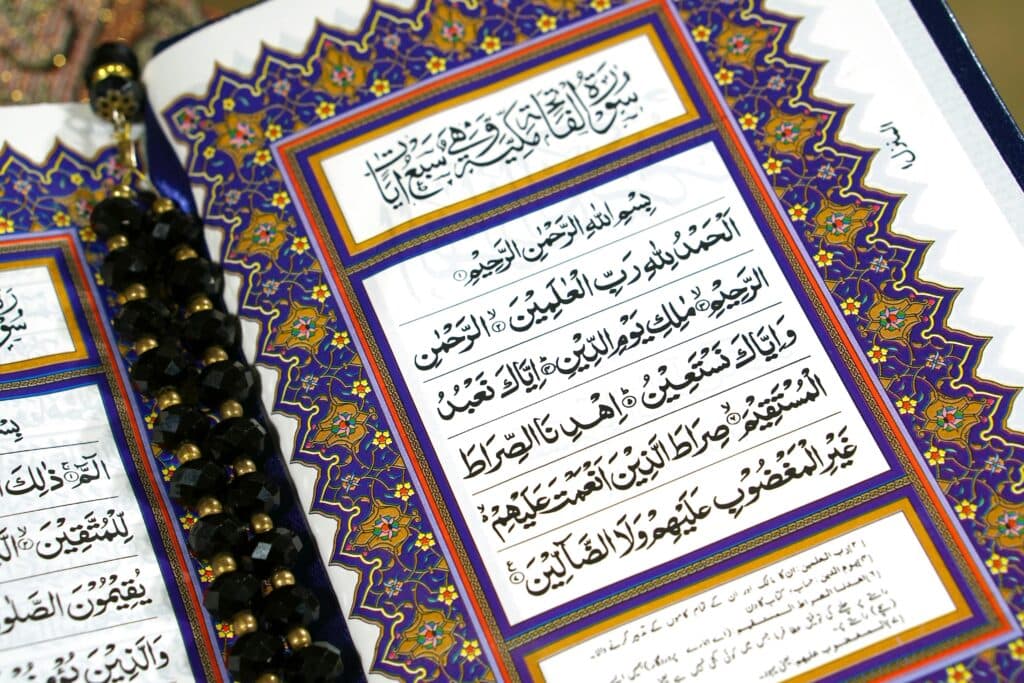 سُوْرَةُ الْفَاتِحَةِ مَكِّيَّةٌ وَّهِيَ سَبْعُ اٰيَاتٍ
بِسْمِ اللّٰهِ الرَّحْمٰنِ الرَّحِيْمِ ۝۱
اَلْحَمْدُ لِلّٰهِ رَبِّ الْعٰلَمِيْنَ ۝۲ الرَّحْمٰنِ
الرَّحِيْمِ ۝۳ مٰلِكِ يَوْمِ الدِّيْنِ ۝۴ اِيَّاكَ نَعْبُدُ
وَاِيَّاكَ نَسْتَعِيْنُ ۝۵ اِهْدِنَا الصِّرَاطَ
الْمُسْتَقِيْمَ ۝۶ صِرَاطَ الَّذِيْنَ اَنْعَمْتَ عَلَيْهِمْ
غَيْرِ الْمَغْضُوْبِ عَلَيْهِمْ وَلَا الضَّآلِّيْنَ ۝۷
المنزل
بِسْ
الٓمّٓ ۝۱ ذٰلِكَ
لِّلْمُتَّقِيْنَ ۝۲
يُقِيْمُوْنَ
وَالَّذِيْنَ